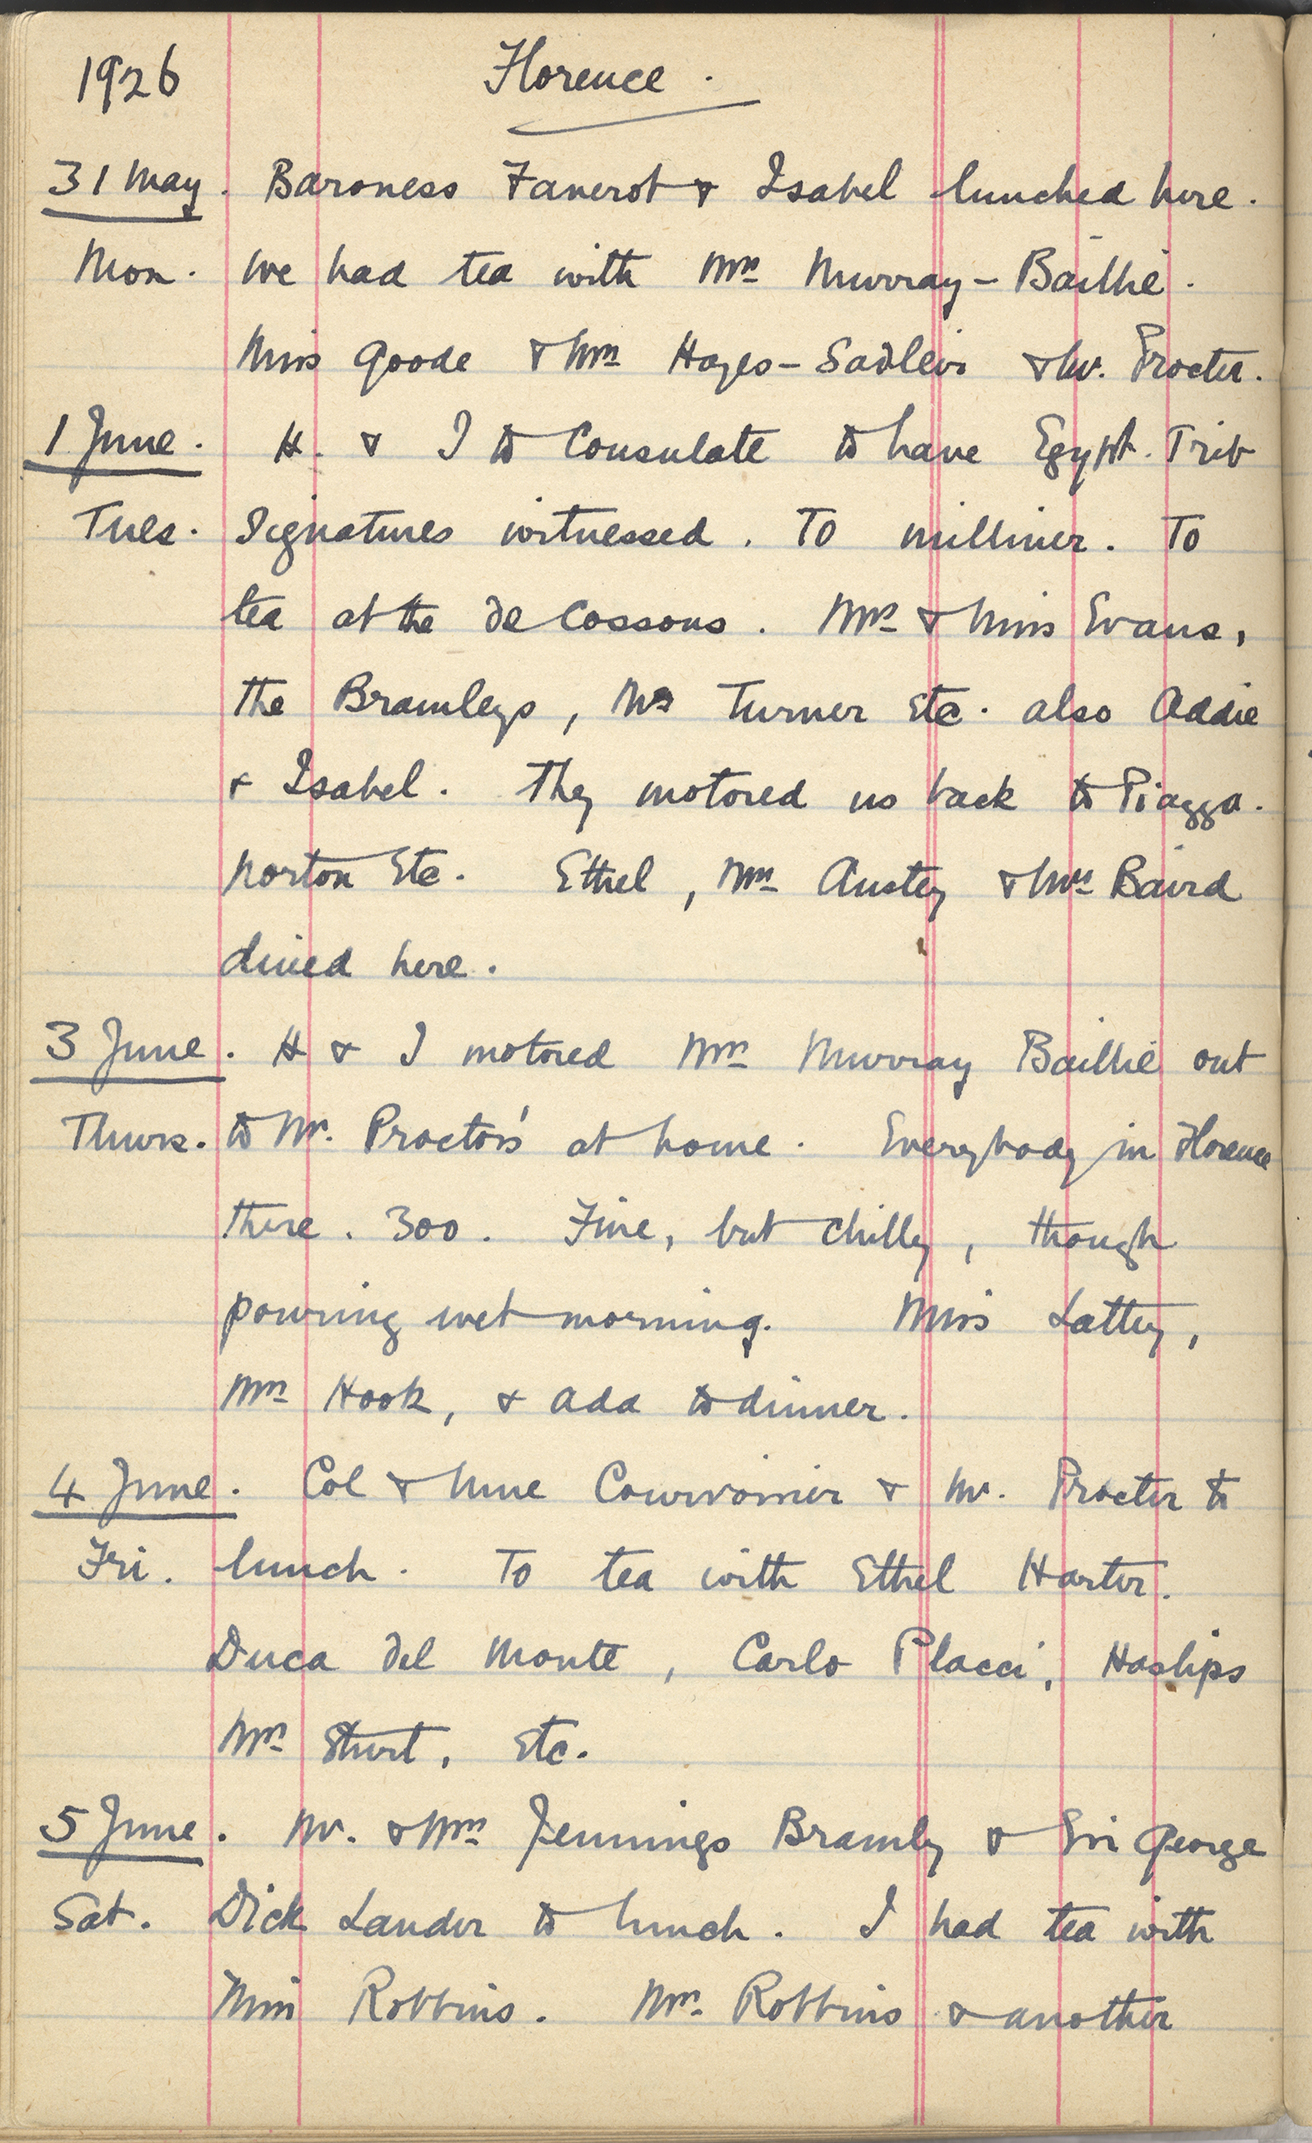 1926 Florence.
31 May. Baroness Fanerot & Isabel lunched here.
Mon. We had tea with Mrs Murray-Baillie.
Miss Goode & Mrs Hayes-Sadleir & Mr. Procter.
1 June. H. & I to Consulate to have Egypt. Trib
Tues. Signatures witnessed. To milliner. To
tea at the de Cossons. Mrs & Miss Evans,
the Bramleys, Mrs Turner etc. also Addie
& Isabel. They motored us back to Piazza.
Norton Etc. Ethel, Mrs Anstey & Mrs Baird
dined here.
3 June. H & I motored Mrs Murray Baillie out
Thurs. to Mr. Proctor's at home. Everybody in Florence
there. 300. Fine, but chilly, though
pouring wet morning. Miss Lattey,
Mrs Hook, & Ada to dinner.
4 June. Col & Mme Courvoisier & Mr. Procter to
Fri. lunch. To tea with Ethel Harter.
Duca del Monte, Carlo Placci, Haslips
Mrs Sturt, etc.
5 June. Mr. & Mrs Jennings Bramly & Sir George
Sat. Dick Lauder to lunch. I had tea with
Miss Robbins. Mrs. Robbins & another